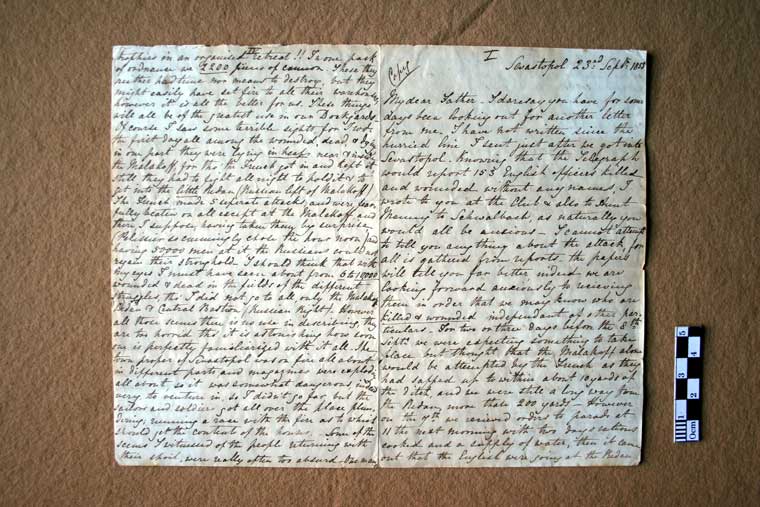 I
Copy
Sevastopol 23rd Septr. 1855
My dear Father. I daresay you have for some
days been looking out for another letter
from me. I have not written since the
hurried line I sent just after we got into
Sevastopol. Knowing that the Telegraph
would report 153 English officers killed
and wounded without any names, I
wrote to you at the Club & also to Aunt
to Schwalbach, as naturally you
would all be anxious. I cannot attempt
to tell you anything about the attack, for
all is gathered from reports. the papers
will tell you far better indeed we are
looking forward anxiously to receiving
them in order that we may know who are
killed & wounded independent of other par-
ticulars. For two or three days before the 8th
Septr we were expecting something to take
place but thought that the Malakoff alone
would be attempted by the French as they
had sapped up to within about 10 yards of
the ditch, and we were still a long way from
the Redan more than 200 yards. However
on the 7th we received orders to parade at
11 the next morning with two days rations
cooked and a supply of water, then it came
out that the English were going at the Redan
trophies in an organised retreat!! From park
of ordnance we 2200 pieces of cannon. These they
neither had time nor means to destroy, but they
might easily have set fire to all their warehouses
however it is all the better for us. These things
will all be of the greatest use in our Dockyards.
Of course I saw some terrible sights, for I was
the first day all among the wounded, dead &
in our part they were lying in heaps near & inside
the Malakoff, for the French got in and kept it
still they had to fight all night to hold it & to
get into the little Redan (Russian left of Malakoff)
The French made 5 seperate attacks, and were fear-
fully beaten on all except at the Malakoff and
there I suppose, having taken them by surprise.
Pelissier so cunningly chose the hour noon, and
having 30000 men at it the Russians could not
regain their stronghold. I should think that with
my eyes I must have seen about from 6 to 10000
wounded & dead in the fields of the different
struggles, tho' I did not go to all, only the Malakoff
Redan & Central Bastion (Russian Right). However
all those scenes there is no use in describing, they
are too horrid tho' it is astonishing how soon
one is perfectly familiarised with it all. The
town proper of Sevastopol was on fire all about
in different parts and magazines were exploding
all about, so it was somewhat dangerous, indeed
very to venture in, so I didn't go far, but the
sailors and soldiers got all over the place plun-
dering, running a race with the fire as to which
should get the contents of the houses. Some of the
scenes I witnessed of the people returning with
their spoil, were really often too absurd. One man